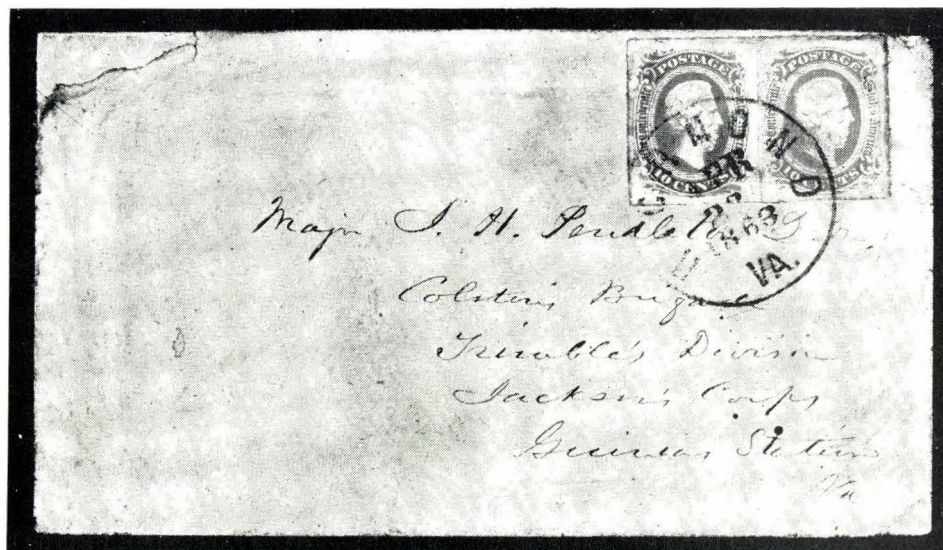 POSTAGE POSTAGE
TEN CENTS TEN CENTS
RICHMOND
APR
22
1863
VA.
Major J. H. Pendleton
Colston's Brigade
Trimble's Division
Jackson's Corps
Guineas Station
Va